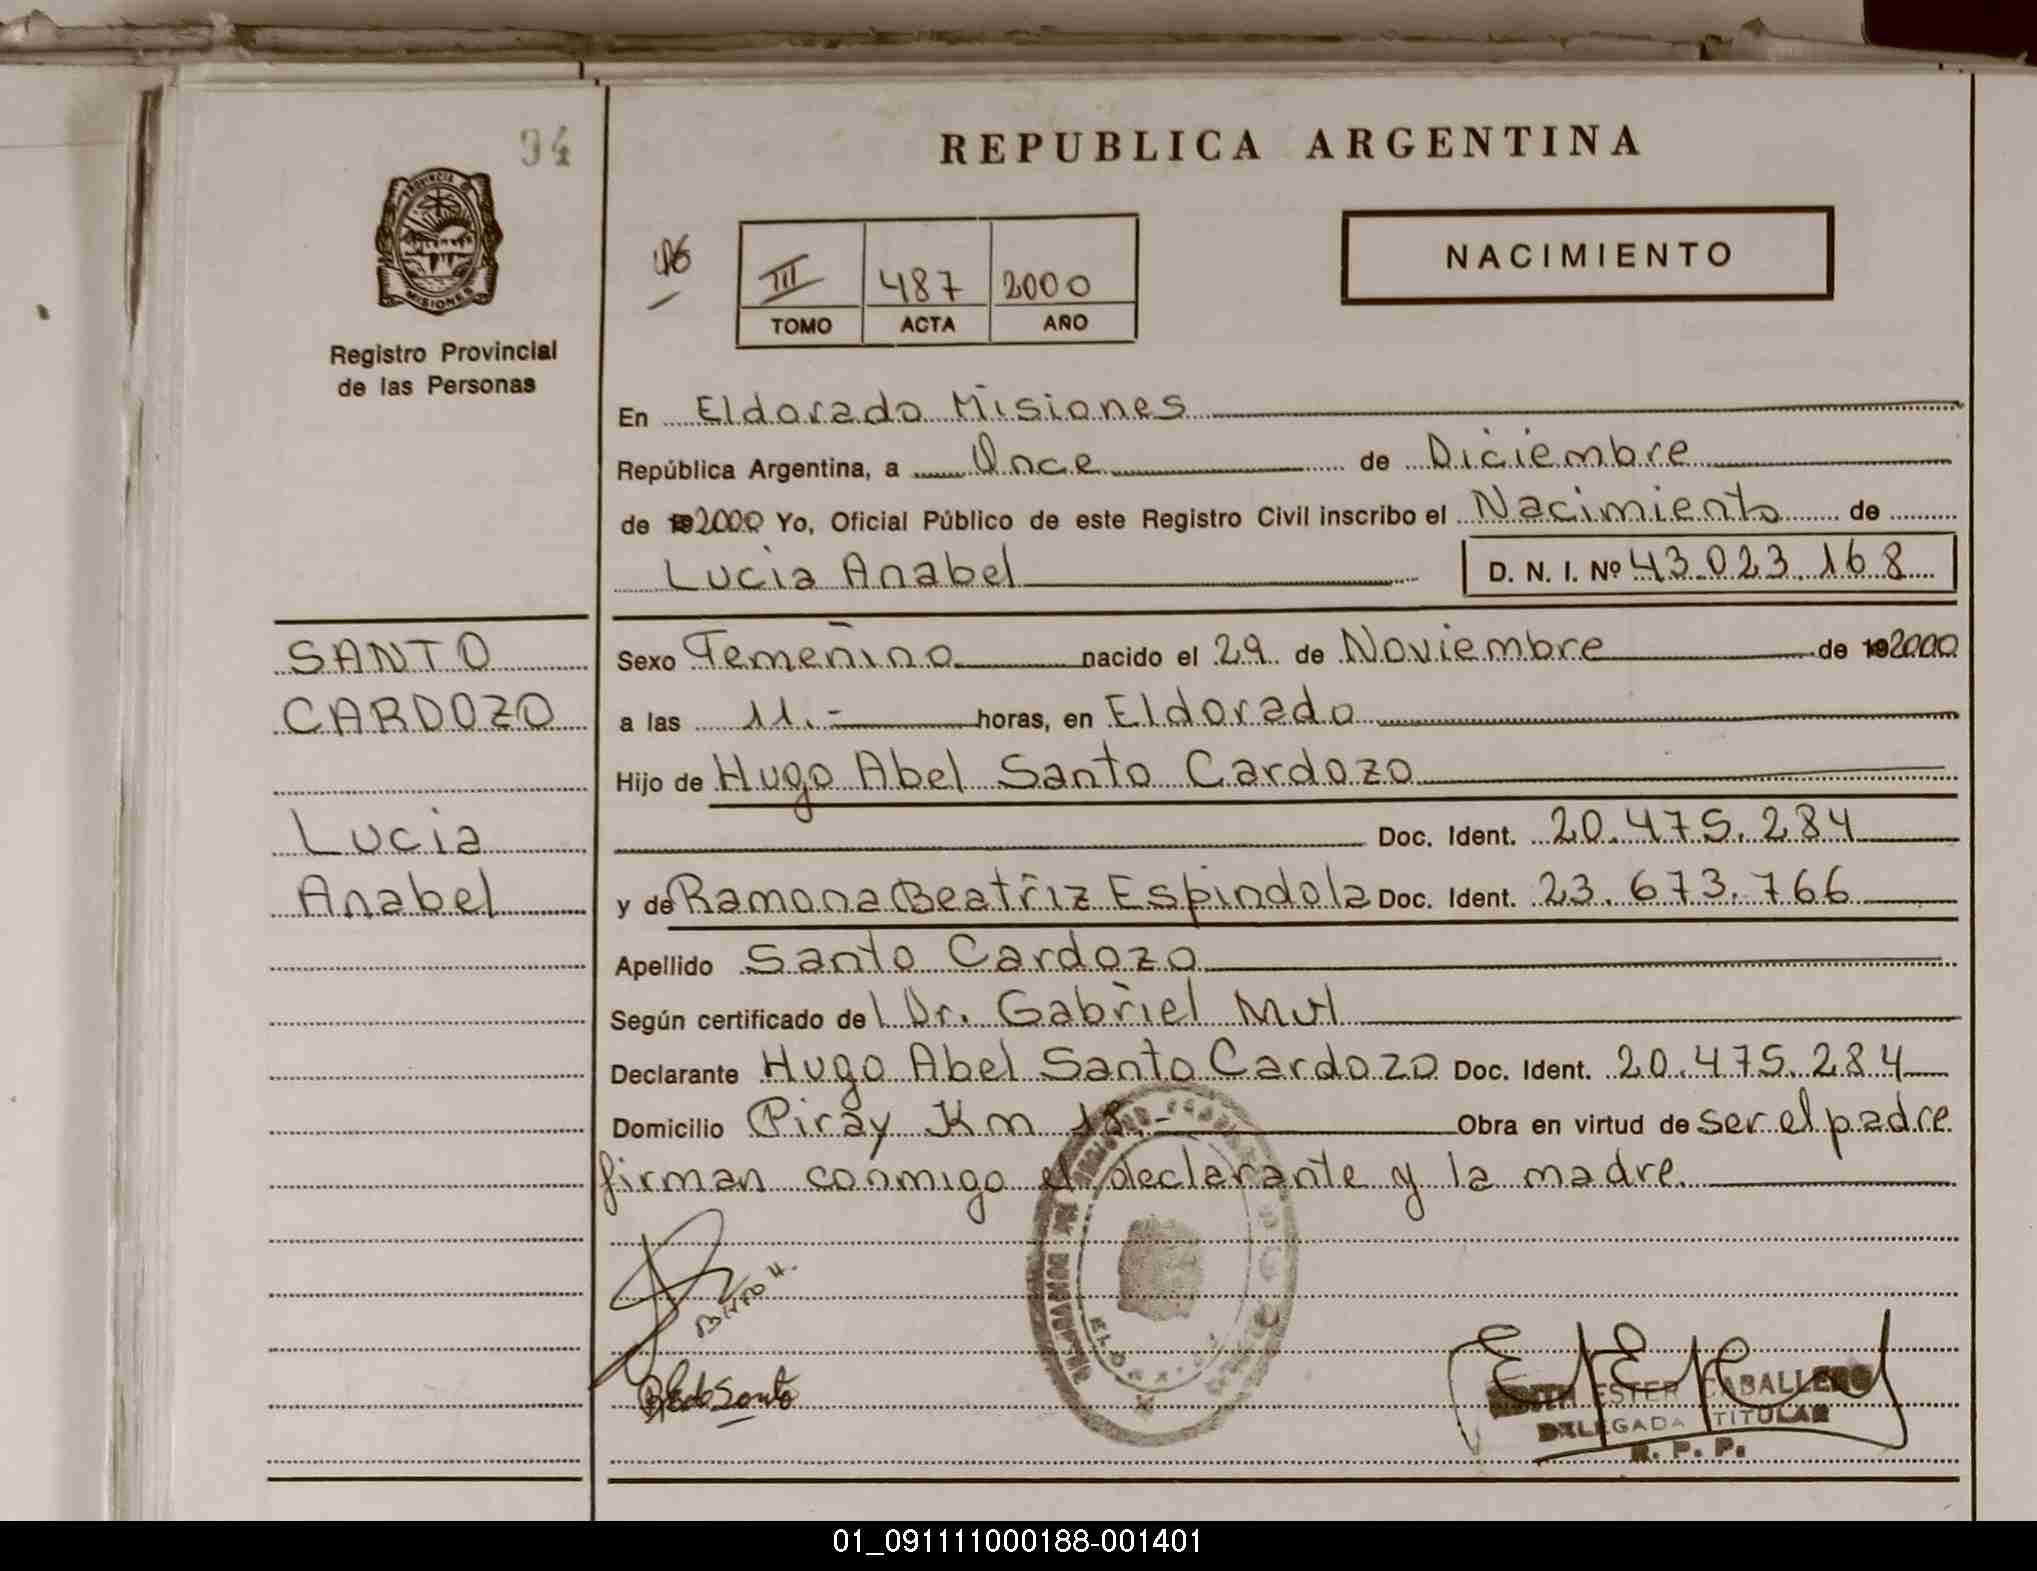 94
REPUBLICA ARGENTINA
PROVINCIA DE
MISIONES
Registro Provincial
de las Personas
III 487 2000
TOMO ACTA AÑO
NACIMIENTO
En Eldorado Misiones
República Argentina, a Once de Diciembre
de 192000 Yo, Oficial Público de este Registro Civil inscribo el Nacimiento de
Lucia Anabel D. N. I. Nº 43.023.168
SANTO
CARDOZO
Lucia
Anabel
Sexo Femeñino nacido el 29 de Noviembre de 192000
a las 11.- horas, en Eldorado
Hijo de Hugo Abel Santo Cardozo
Doc. Ident. 20.475.284
y de Ramona Beatriz Espindola Doc. Ident. 23.673.766
Apellido Santo Cardozo
Según certificado del Dr. Gabriel Mul
Declarante Hugo Abel Santo Cardozo Doc. Ident. 20.475.284
Domicilio Piray Km 18.- Obra en virtud de ser el padre
firman conmigo el declarante y la madre.
EDITH ESTER CABALLERO
DELEGADA TITULAR
R. P. P.
01_091111000188-001401